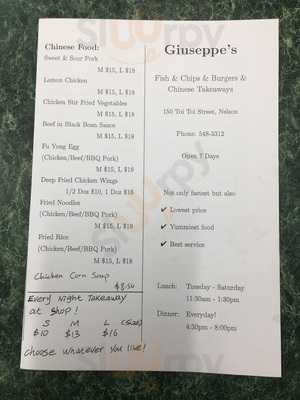 Chinese Food:
Sweet & Sour Pork
M $15, L $18
Lemon Chicken
M $15, L $18
Chicken Stir Fried Vegetables
M $15, L $18
Beef in Black Bean Sauce
M $15, L $18
Fu Yong Egg
(Chicken/Beef/BBQ Pork)
M $15, L $18
Deep Fried Chicken Wings
1/2 Doz $10, 1 Doz $18
Fried Noodles
(Chicken/Beef/BBQ Pork)
M $15, L $18
Fried Rice
(Chicken/Beef/BBQ Pork)
M $15, L $18
Chicken Corn Soup
$8.50
Every Night Takeaway
at Shop!
S M L (Size)
$10 $13 $16
choose whatever you like!
Giuseppe's
Fish & Chips & Burgers &
Chinese Takeaways
150 Toi Toi Street, Nelson
Phone: 548-3312
Open 7 Days
Not only fastest but also
✔ Lowest price
✔ Yummiest food
✔ Best service
Lunch: Tuesday - Saturday
11:30am - 1:30pm
Dinner: Everyday!
4:30pm - 8:00pm
Sluurpy
Sluurpy
Sluurpy